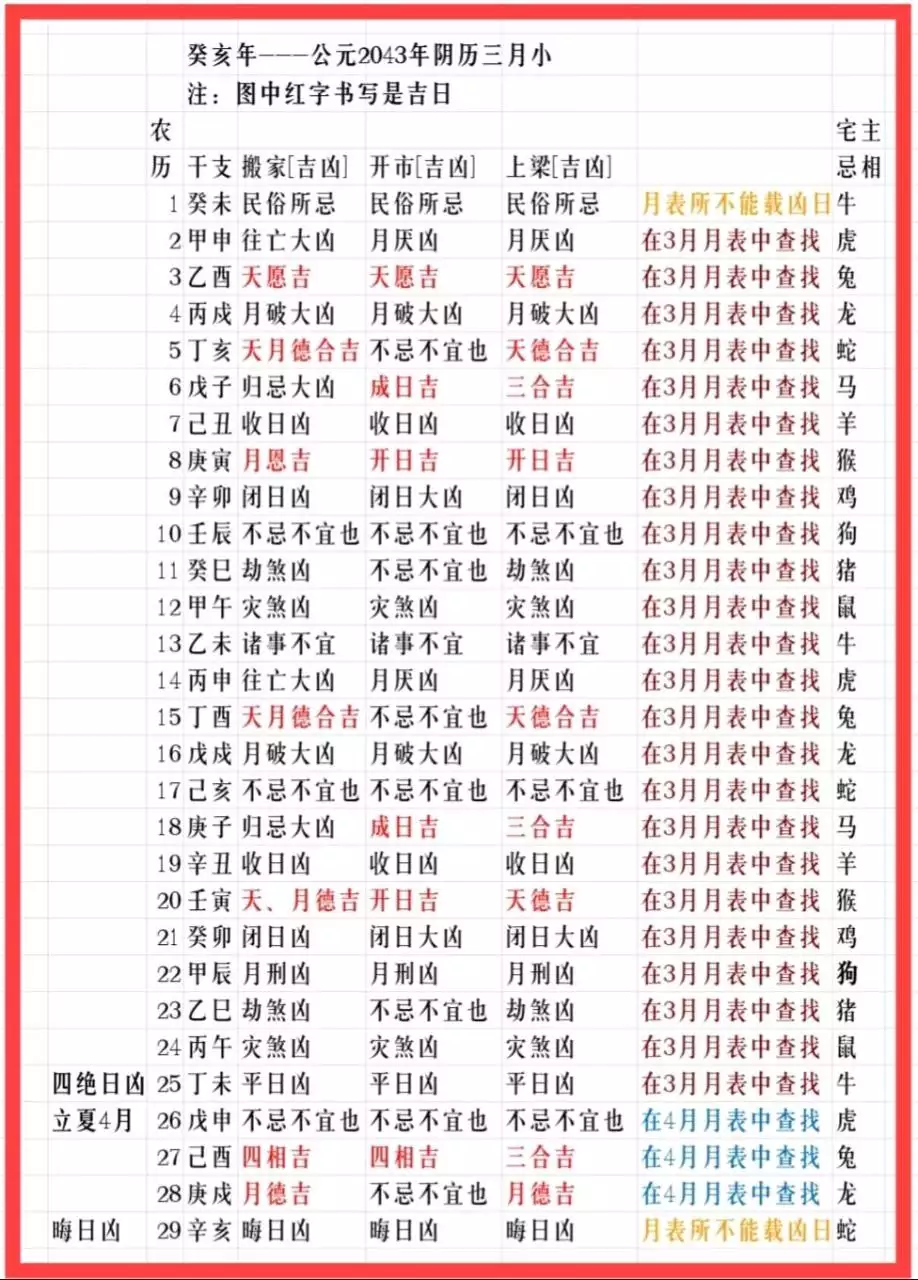 癸亥年---公元2043年阴历三月小
注：图中红字书写是吉日
农 宅主
历 干支 搬家[吉凶] 开市[吉凶] 上梁[吉凶] 忌相
1 癸未 民俗所忌 民俗所忌 民俗所忌 月表所不能载凶日 牛
2 甲申 往亡大凶 月厌凶 月厌凶 在3月月表中查找 虎
3 乙酉 天愿吉 天愿吉 天愿吉 在3月月表中查找 兔
4 丙戌 月破大凶 月破大凶 月破大凶 在3月月表中查找 龙
5 丁亥 天月德合吉 不忌不宜也 天德合吉 在3月月表中查找 蛇
6 戊子 归忌大凶 成日吉 三合吉 在3月月表中查找 马
7 己丑 收日凶 收日凶 收日凶 在3月月表中查找 羊
8 庚寅 月恩吉 开日吉 开日吉 在3月月表中查找 猴
9 辛卯 闭日凶 闭日大凶 闭日凶 在3月月表中查找 鸡
10 壬辰 不忌不宜也 不忌不宜也 不忌不宜也 在3月月表中查找 狗
11 癸巳 劫煞凶 不忌不宜也 劫煞凶 在3月月表中查找 猪
12 甲午 灾煞凶 灾煞凶 灾煞凶 在3月月表中查找 鼠
13 乙未 诸事不宜 诸事不宜 诸事不宜 在3月月表中查找 牛
14 丙申 往亡大凶 月厌凶 月厌凶 在3月月表中查找 虎
15 丁酉 天月德合吉 不忌不宜也 天德合吉 在3月月表中查找 兔
16 戊戌 月破大凶 月破大凶 月破大凶 在3月月表中查找 龙
17 己亥 不忌不宜也 不忌不宜也 不忌不宜也 在3月月表中查找 蛇
18 庚子 归忌大凶 成日吉 三合吉 在3月月表中查找 马
19 辛丑 收日凶 收日凶 收日凶 在3月月表中查找 羊
20 壬寅 天、月德吉 开日吉 天德吉 在3月月表中查找 猴
21 癸卯 闭日凶 闭日大凶 闭日大凶 在3月月表中查找 鸡
22 甲辰 月刑凶 月刑凶 月刑凶 在3月月表中查找 狗
23 乙巳 劫煞凶 不忌不宜也 劫煞凶 在3月月表中查找 猪
24 丙午 灾煞凶 灾煞凶 灾煞凶 在3月月表中查找 鼠
四绝日凶 25 丁未 平日凶 平日凶 平日凶 在3月月表中查找 牛
立夏4月 26 戊申 不忌不宜也 不忌不宜也 不忌不宜也 在4月月表中查找 虎
27 己酉 四相吉 四相吉 三合吉 在4月月表中查找 兔
28 庚戌 月德吉 不忌不宜也 月德吉 在4月月表中查找 龙
晦日凶 29 辛亥 晦日凶 晦日凶 晦日凶 月表所不能载凶日 蛇